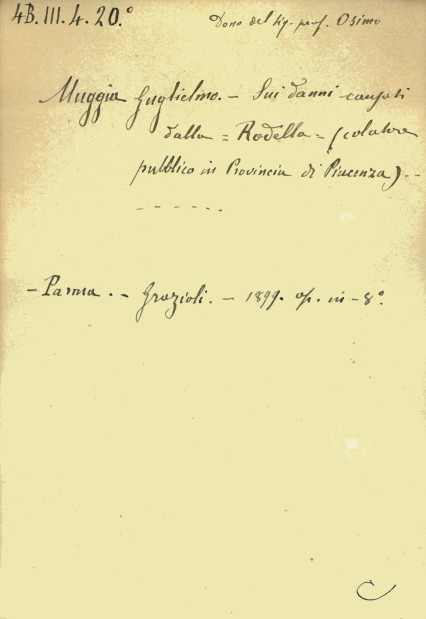 4B.III.4.20.°
Dono del Sig. prof. Osimo
Muggia Guglielmo. - Sui danni causati
dalla = Rodella = (colatore
pubblico in Provincia di Piacenza) - -
- - - - - -
- Parma. - Grazioli. - 1899. op. in - 8°.
C